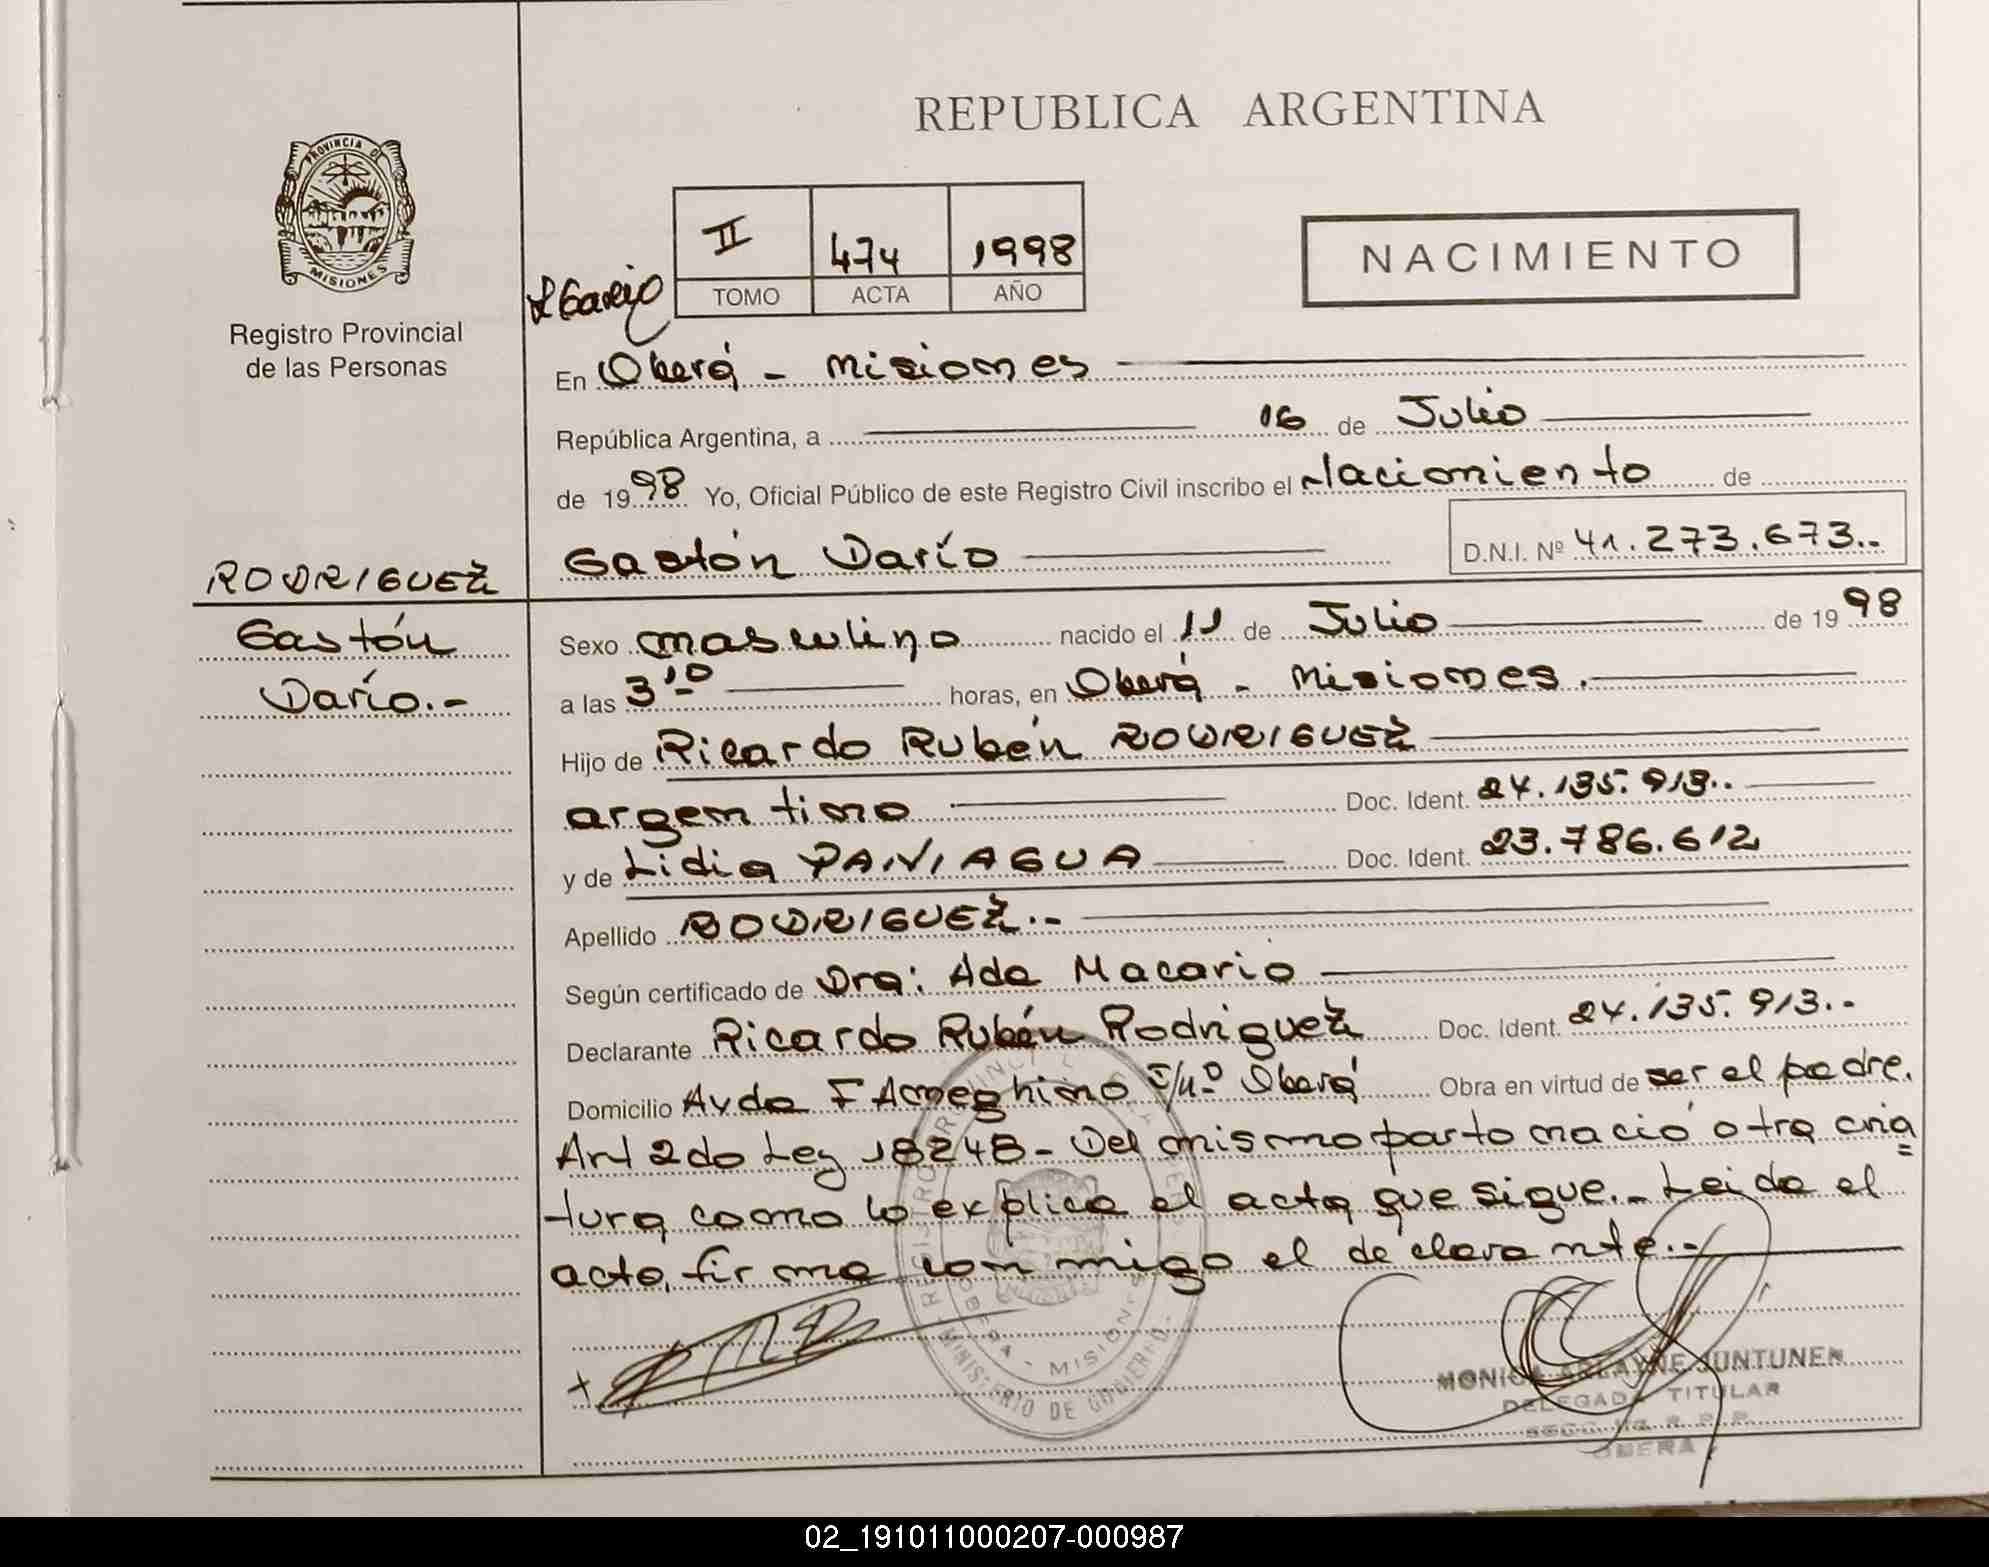 REPUBLICA ARGENTINA
PROVINCIA DE
MISIONES
Registro Provincial
de las Personas
II 474 1998
TOMO ACTA AÑO
NACIMIENTO
En Oberá - Misiones
República Argentina, a 16 de Julio
de 1998 Yo, Oficial Público de este Registro Civil inscribo el Nacimiento de
Gastón Darío D.N.I. Nº 41.273.673.-
RODRIGUEZ
Gastón
Darío.-
Sexo masculino nacido el 11 de Julio de 1998
a las 3 10 horas, en Oberá - Misiones.
Hijo de Ricardo Rubén RODRIGUEZ
argentino Doc. Ident. 24.135.913.-
y de Lidia PANIAGUA Doc. Ident. 23.786.612
Apellido RODRIGUEZ.-
Según certificado de Dra: Ada Macario
Declarante Ricardo Rubén Rodriguez Doc. Ident. 24.135.913.-
Domicilio Avda F Ameghino S/nº Oberá Obra en virtud de ser el padre.
Art 2do Ley 18248- Del mismo parto nació otra cria=
tura como lo explica el acta que sigue.- Leida el
acta, firma conmigo el declarante.-
MONICA ARLAYNE JUNTUNEN
DELEGADA TITULAR
OBERA
MINISTERIO DE GOBIERNO
MISIONES
02_191011000207-000987